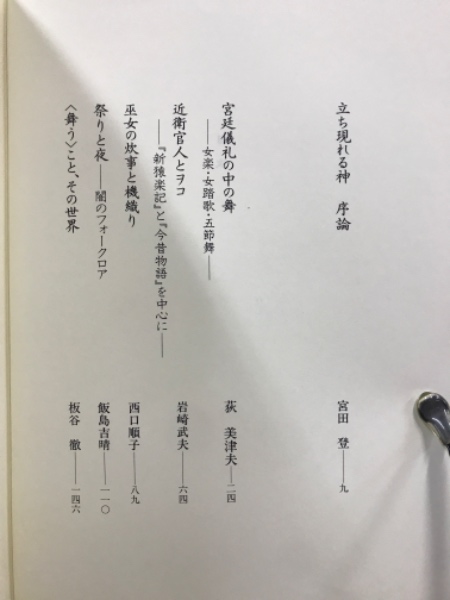 立ち現れる神　序論　宮田　登――九
宮廷儀礼の中の舞　荻　美津夫――二四
――女楽・女踏歌・五節舞――
近衛官人とヲコ　岩崎武夫――六四
――『新猿楽記』と『今昔物語』を中心に――
巫女の炊事と機織り　西口順子――八九
祭りと夜――闇のフォークロア　飯島吉晴――一一〇
〈舞う〉こと、その世界　板谷　徹――一四六